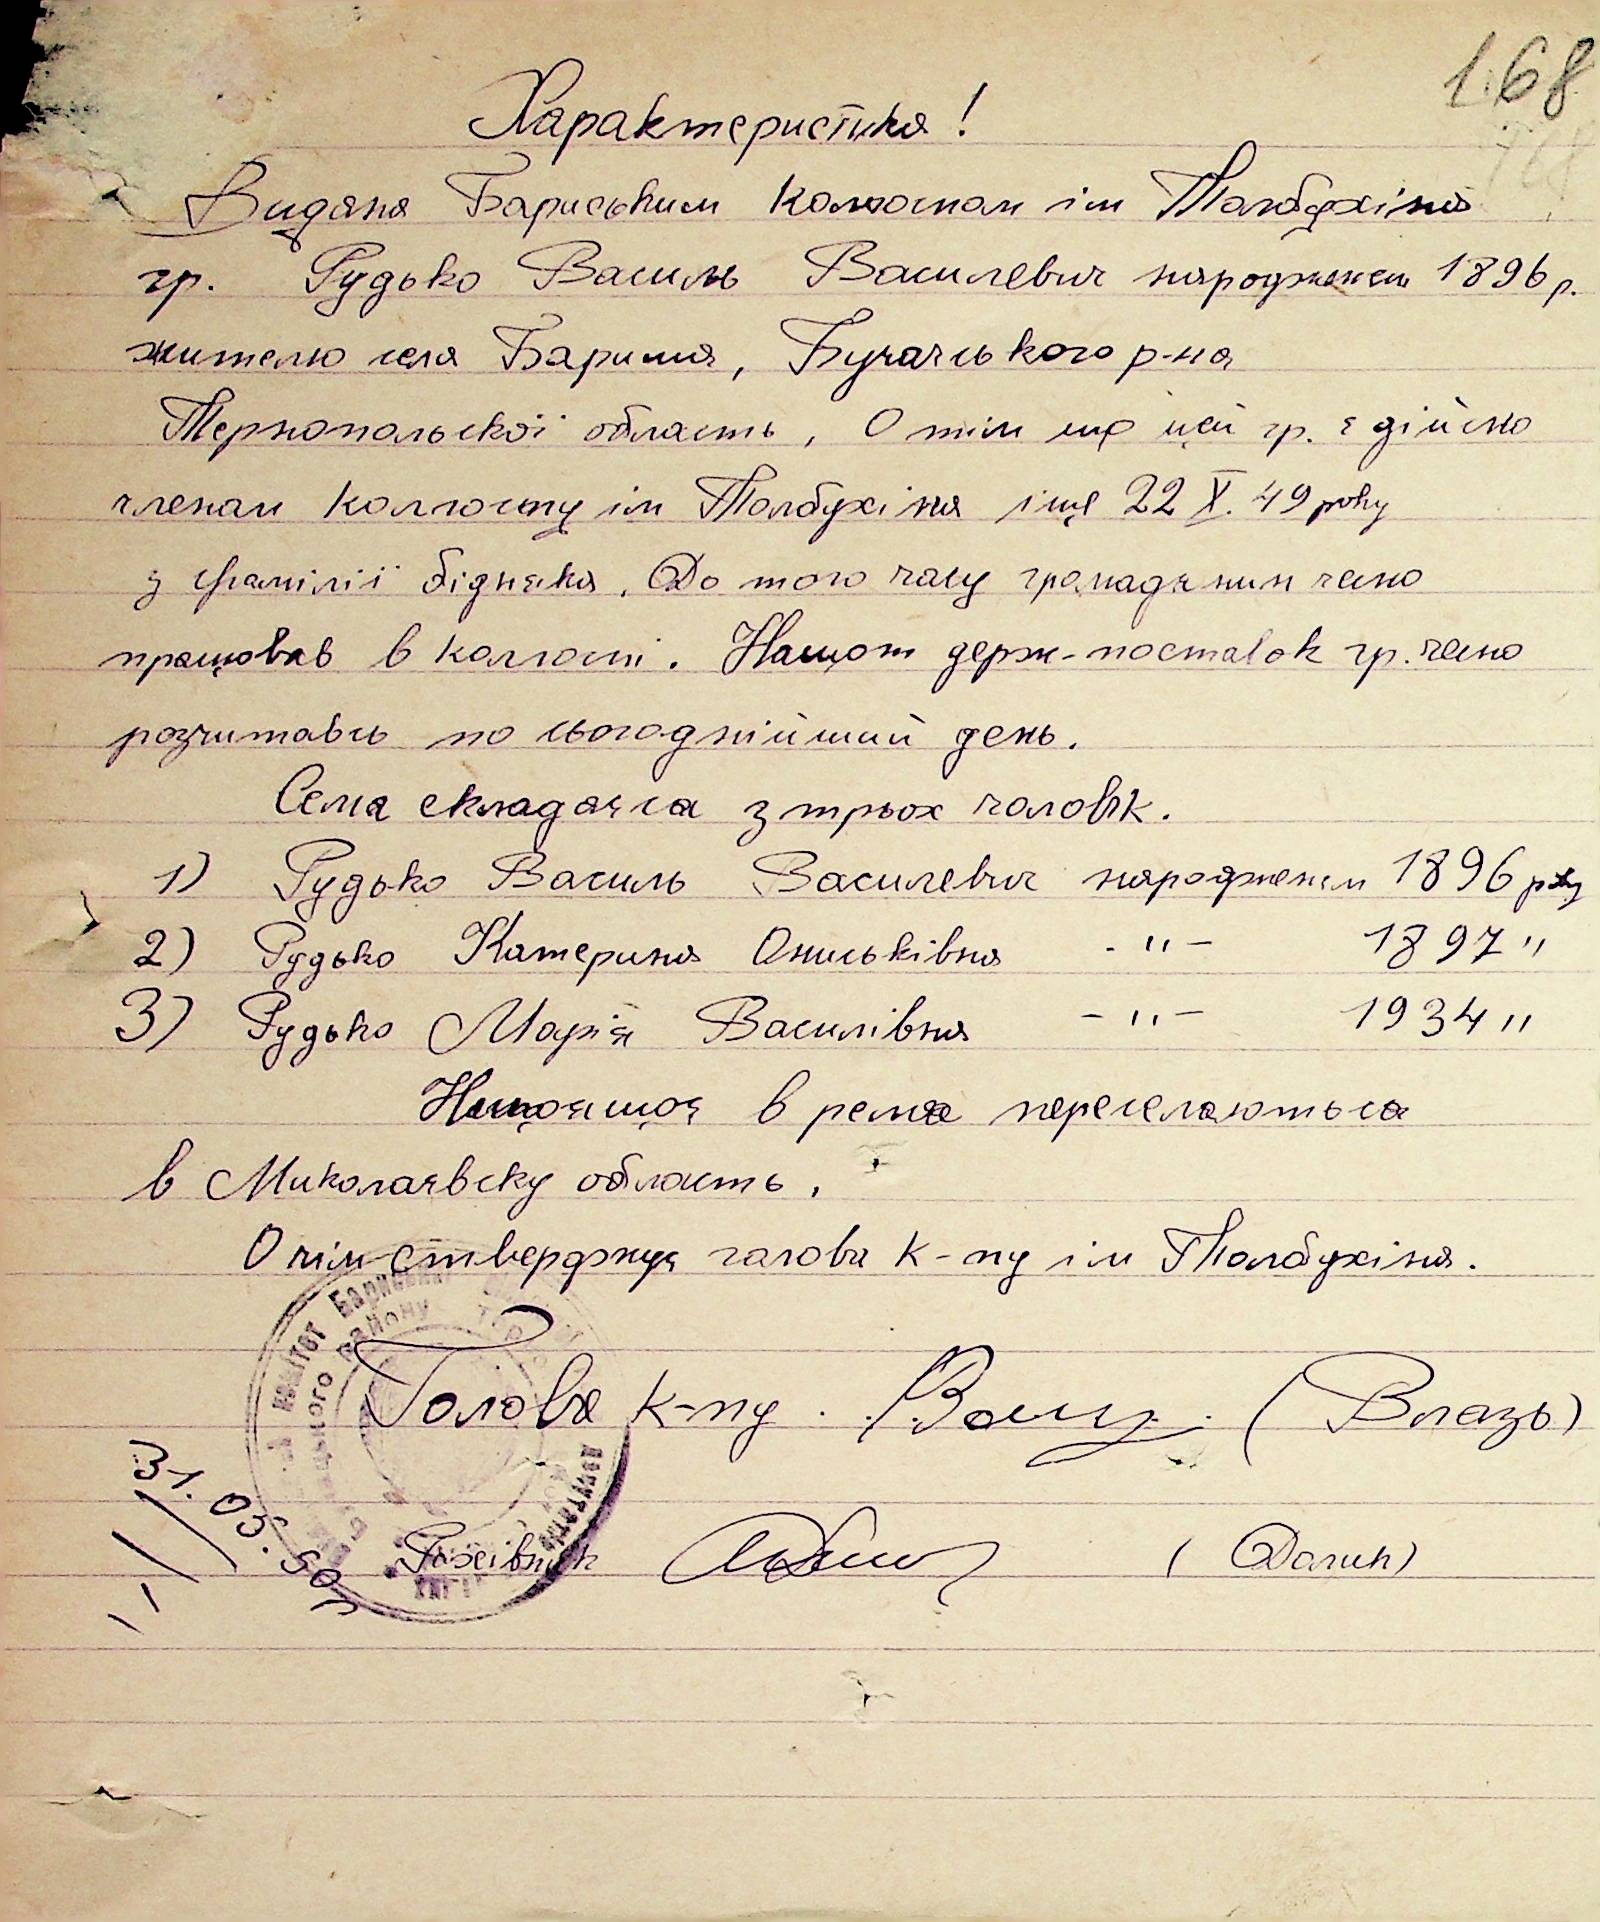 168
Характеристика!
Видана Бариським колгоспом ім Толбухіна
гр. Рудько Василь Василевич народженем 1896 р.
жителю села Бариша, Бучачського р-на
Тернопольскої область, О тім що цей гр. є дійсно
членам колгоспу ім Толбухіна іще 22 X. 49 року
з фамілії бідняка. До того часу громадянин чесно
працював в колгоспі. Нащот держ-поставок гр. чесно
розчитавсь по сьогоднійший день.
Семя складаяса з трьох чоловік.
1) Рудько Василь Василевич народженем 1896 року
2) Рудько Катерина Ониськівна -"- 1897 "
3) Рудько Марія Василівна -"- 1934 "
Нащоящоя в ремяа переселяютьса
в Миколаявску область.
О чім стверджуя голова к-пу ім Толбухіна.
Голова к-пу (Влазь)
Рахівник (Долин)
31.05.50 г